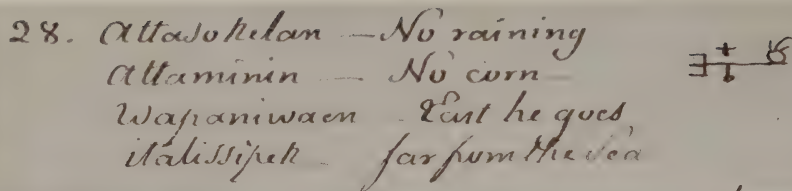 28. Attasokelan — No raining
Attaminin — No corn
Wapaniwaen East he goes
italissipek far from the sea